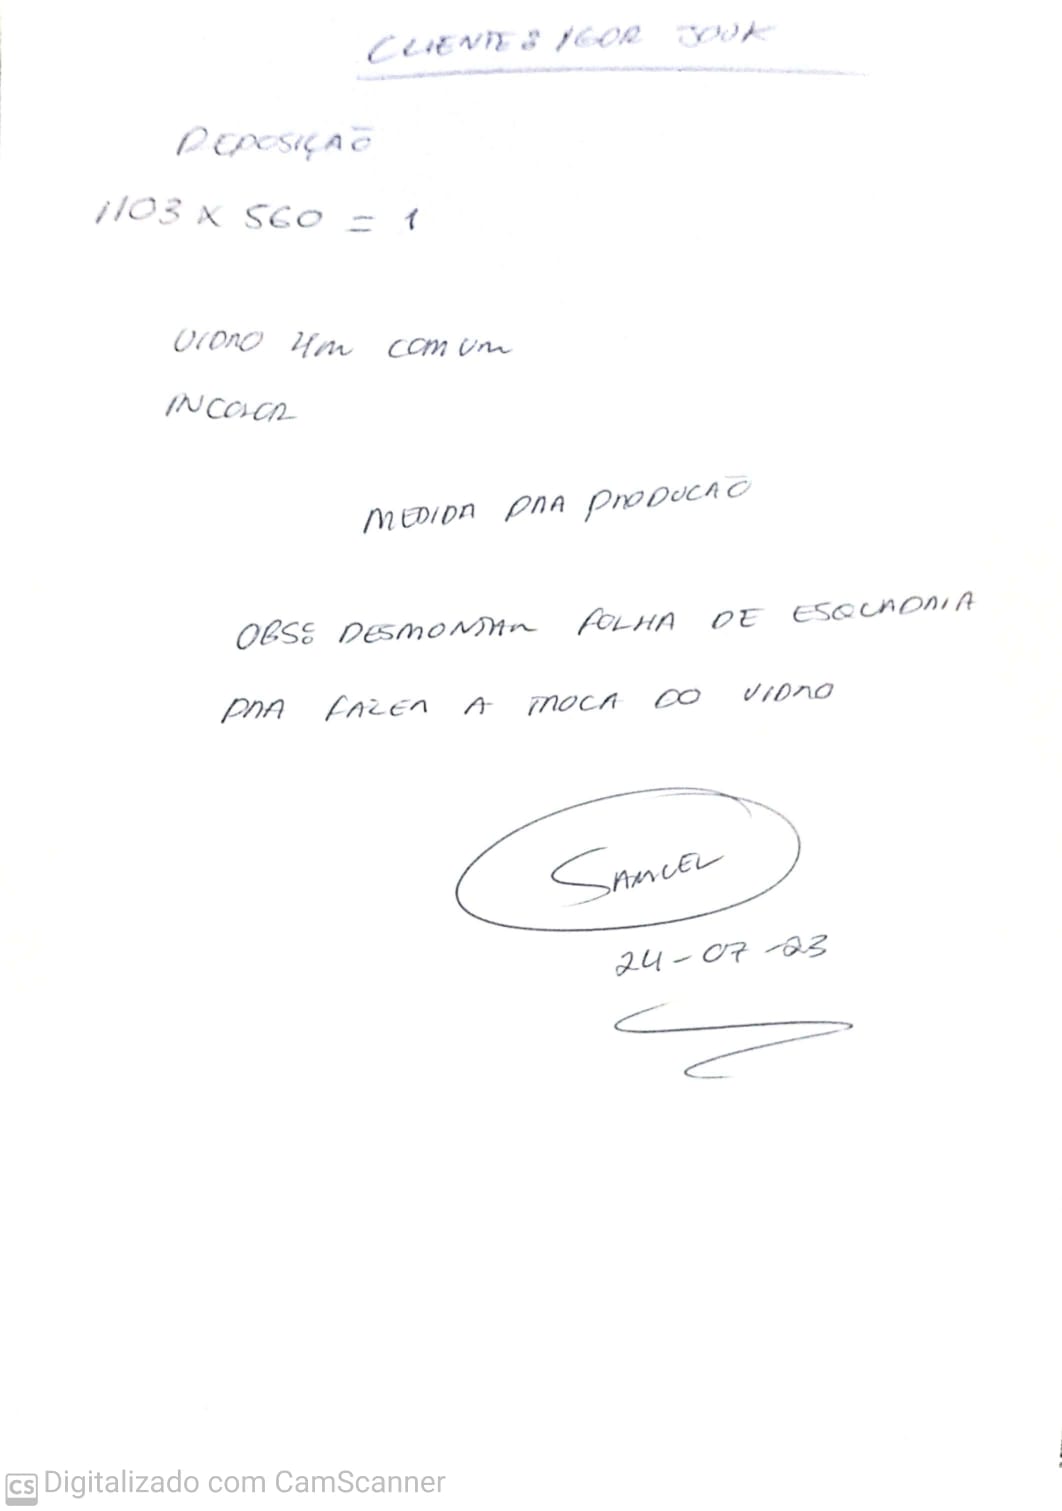 CLIENTE: IGOR JOUK
REPOSIÇÃO
1103 X 560 = 1
VIDRO 4m COMUM
INCOLOR
MEDIDA PRA PRODUCAO
OBS: DESMONTAR FOLHA DE ESQUADRIA
PRA FAZER A TROCA DO VIDRO
SAMUEL
24-07-23
CS Digitalizado com CamScanner